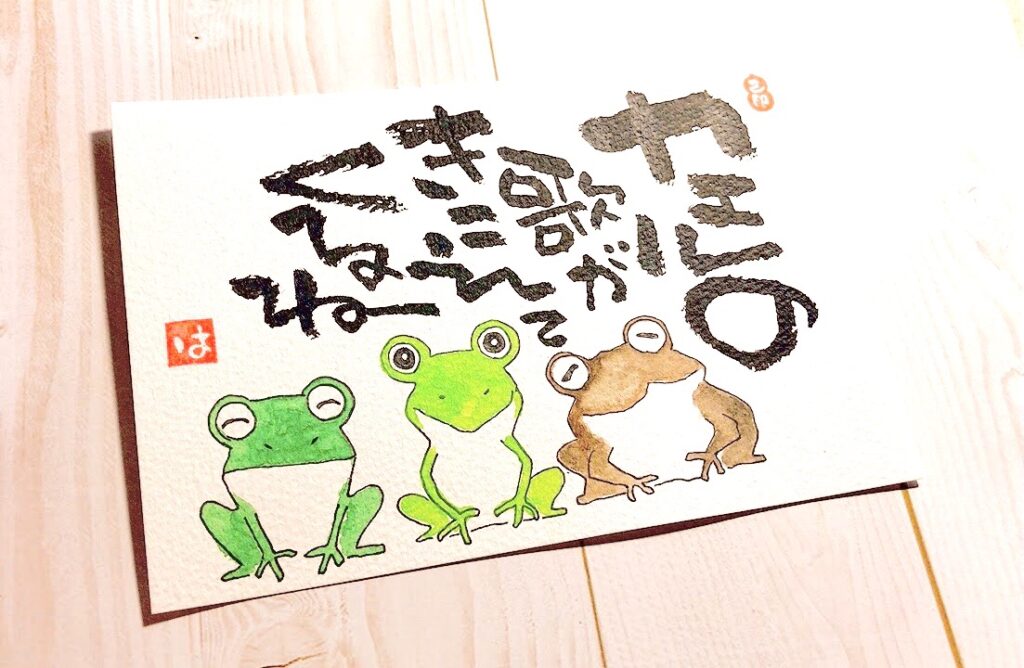 カエルの
歌が
きこえて
くるね
は